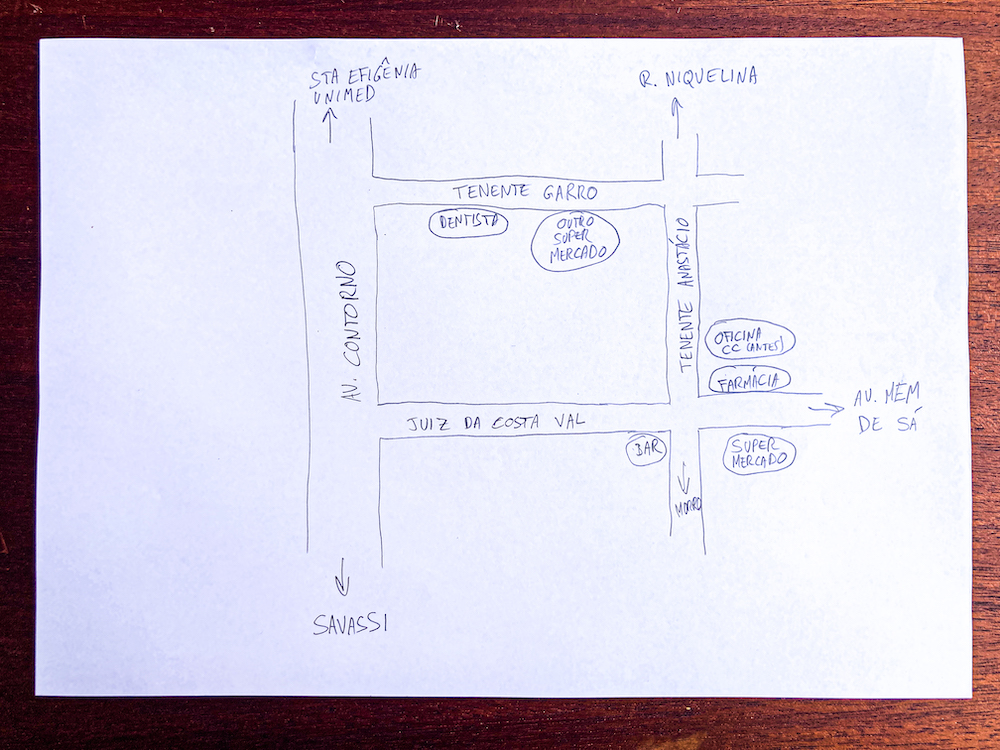 STA EFIGÊNIA
UNIMED
R. NIQUELINA
TENENTE GARRO
DENTISTA
OUTRO
SUPER
MERCADO
AV. CONTORNO
TENENTE ANASTÁCIO
OFICINA
CC (ANTES)
FARMÁCIA
AV. MÉM
DE SÁ
JUIZ DA COSTA VAL
BAR
SUPER
MERCADO
MORRO
SAVASSI